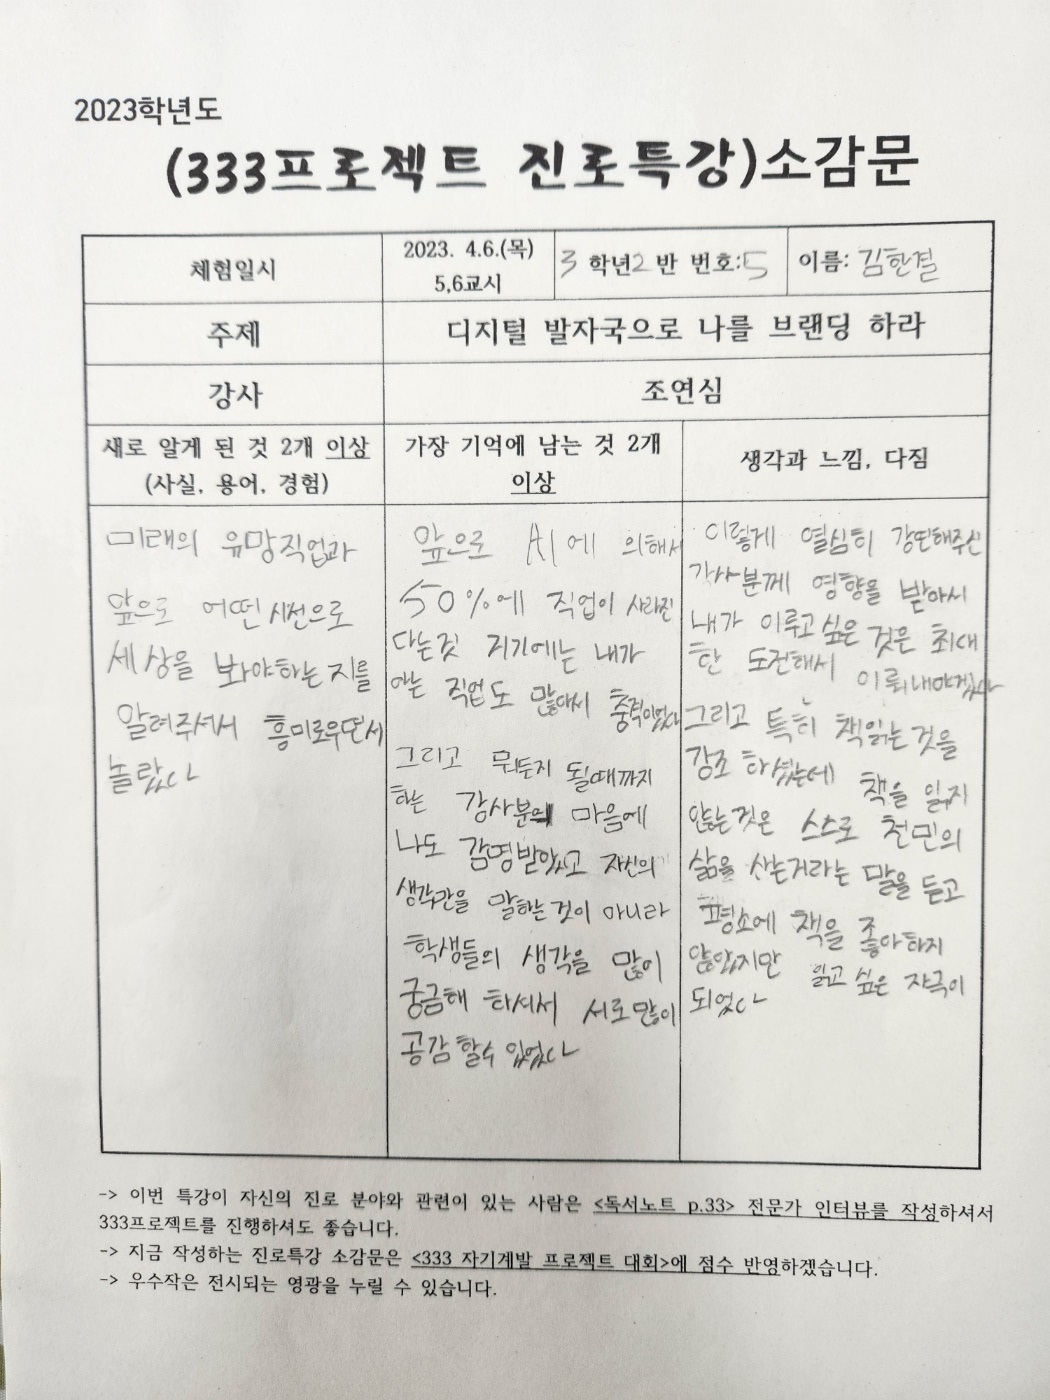 2023학년도
(333프로젝트 진로특강)소감문
체험일시
2023. 4.6.(목)
5,6교시
3 학년2 반 번호:5
이름: 김한결
주제
디지털 발자국으로 나를 브랜딩 하라
강사
조연심
새로 알게 된 것 2개 이상
(사실, 용어, 경험)
가장 기억에 남는 것 2개
이상
생각과 느낌, 다짐
미래의 유망직업과
앞으로 어떤 시선으로
세상을 봐야하는지를
알려주셔서 흥미로우면서
놀랐다
앞으로 AI에 의해서
50%에 직업이 사라진
다는것 저기에는 내가
아는 직업도 많아서 충격이었다
그리고 뭐든지 될때까지
하는 강사분의 마음에
나도 감명받았고 자신의
생각만을 말하는것이 아니라
학생들의 생각을 많이
궁금해 하셔서 서로많이
공감할수 있었다
이렇게 열심히 강연해주신
강사분께 영향을 받아서
내가 이루고싶은 것은 최대
한 도전해서 이뤄내야겠다
그리고 특히 책읽는것을
강조 하셨는데 책을 읽지
않는것은 스스로 천민의
삶을 사는거라는 말을 듣고
평소에 책을 좋아하지
않았지만 읽고 싶은 자극이
되었다
-> 이번 특강이 자신의 진로 분야와 관련이 있는 사람은 <독서노트 p.33> 전문가 인터뷰를 작성하셔서
333프로젝트를 진행하셔도 좋습니다.
-> 지금 작성하는 진로특강 소감문은 <333 자기계발 프로젝트 대회>에 점수 반영하겠습니다.
-> 우수작은 전시되는 영광을 누릴 수 있습니다.